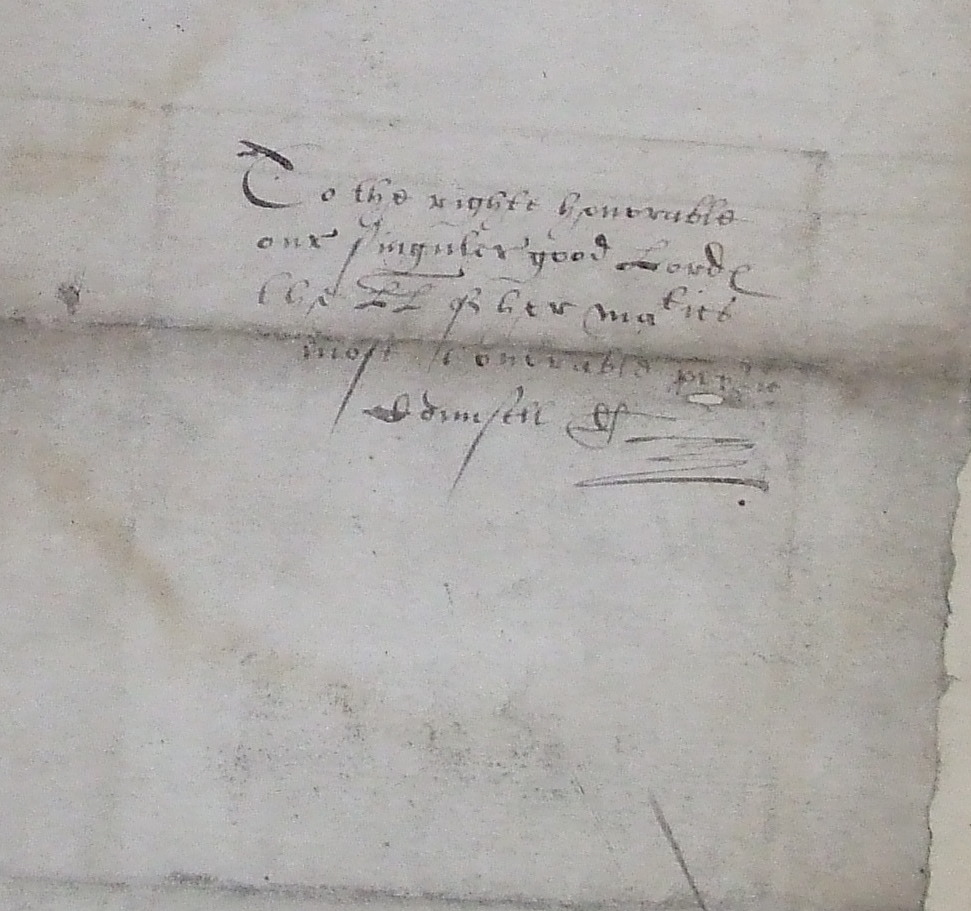 To the right honorable
our singuler good Lordes
the LL of her maties
most honorable privie
Counsell